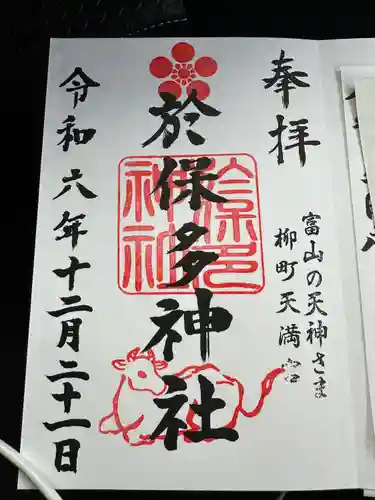 奉拝
富山の天神さま
柳町天満宮
於保多神社
令和六年十二月二十一日